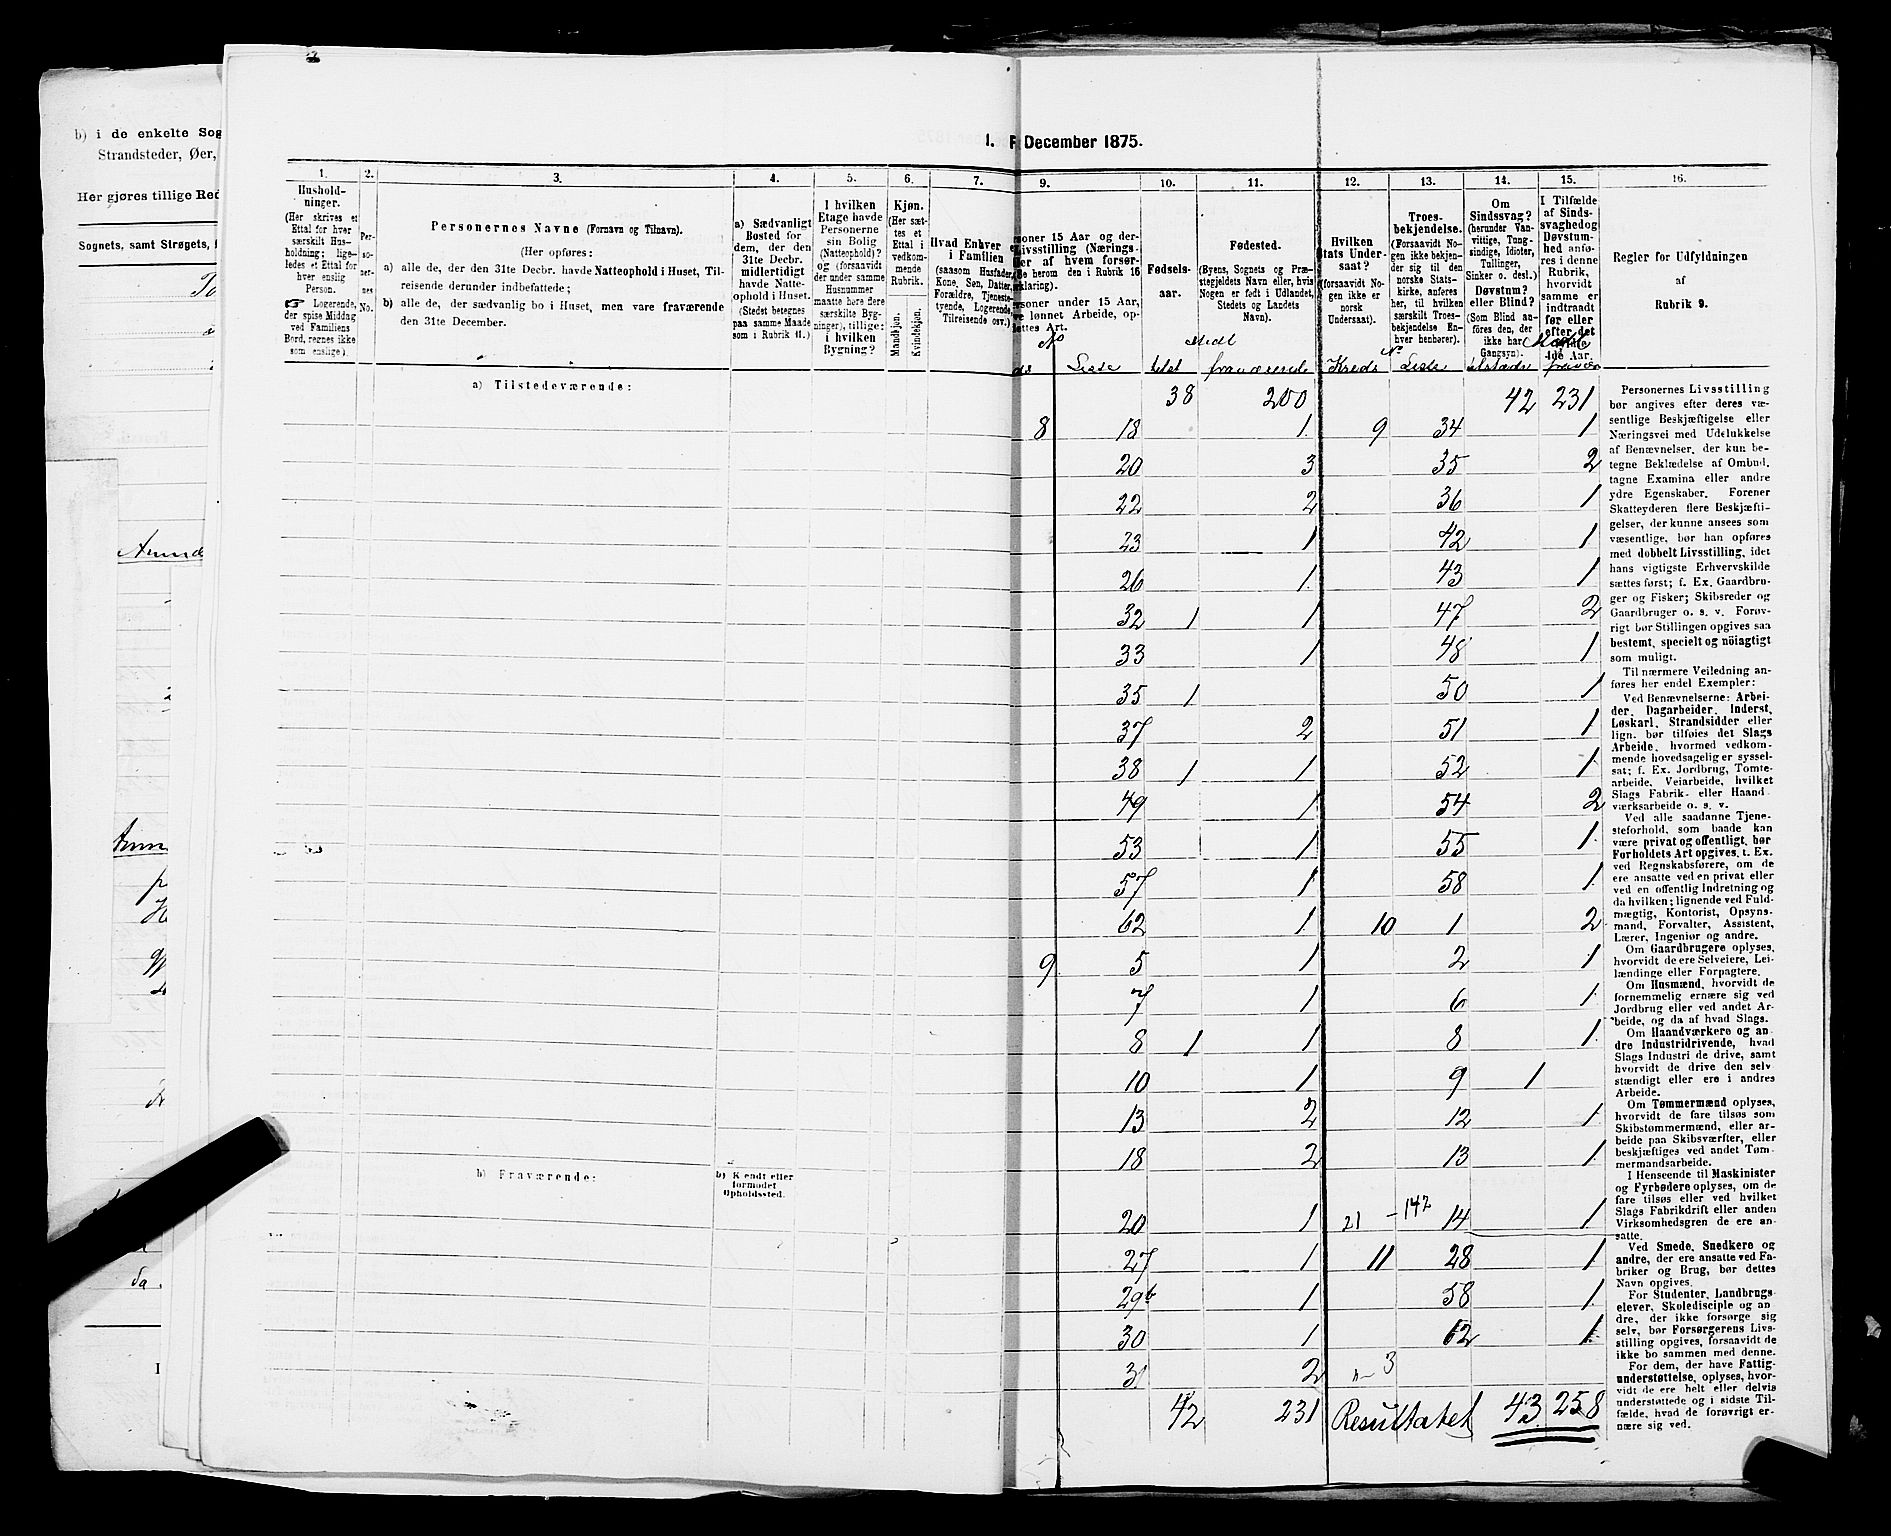 b) i de enkelte Sog
Strandsteder, Øer,
Her gjøres tillige Red
Sognets, samt Strøgets,
1. December 1875.
1. 2. 3. 4. 5. 6. 7. 9. 10. 11. 12. 13. 14. 15. 16.
Hushold-
ninger.
(Her skrives et
Ettal for hver
særskilt Hus-
holdning; lige-
ledes et Ettal for
hver enslig
Person.
☞ Logerende,
der spise Middag
ved Familiens
Bord, regnes ikke
som enslige).
Per-
so-
ner-
nes
No.
Personernes Navne (Fornavn og Tilnavn).
(Her opføres:
a) alle de, der den 31te Decbr. havde Natteophold i Huset, Til-
reisende derunder indbefattede;
b) alle de, der sædvanlig bo i Huset, men vare fraværende
den 31te December.
a) Sædvanligt
Bosted for
dem, der den
31te Decbr.
midlertidigt
havde Natte-
ophold i Huset.
(Stedet betegnes
paa samme Maade
som i Rubrik 11.)
I hvilken
Etage havde
Personerne
sin Bolig
(Natteophold)?
og (forsaavidt
der under samme
Husnummer
maatte høre flere
særskilte Byg-
ninger), tillige:
i hvilken
Bygning?
Kjøn.
(Her sæt-
tes et
Ettal i
vedkom-
mende
Rubrik.
Mandkjøn.
Kvindekjøn.
Hvad Enhver er
i Familien
(saasom Husfader,
Kone, Søn, Datter,
Forældre, Tjeneste-
tyende, Logerende,
Tilreisende osv.)
soner 15 Aar og der-
Livsstilling (Nærings-
ler af hvem forsør-
(Se herom den i Rubrik 16
klaring).
soner under 15 Aar,
ve lønnet Arbeide, op-
dettes Art.
Fødsels-
aar.
Fødested.
(Byens, Sognets og Præ-
stegjeldets Navn eller, hvis
Nogen er født i Udlandet,
Stedets og Landets
Navn).
Hvilken
Stats Under-
saat?
(forsaavidt No-
gen ikke er
norsk
Undersaat).
Troes-
bekjendelse.
(Forsaavidt No-
gen ikke bekjen-
der sig til den
norske Stats-
kirke, anføres
her, til hvilken
særskilt Troes-
bekjendelse En-
hver henhører).
Om
Sindssvag?
(herunder Van-
vittige, Tung-
sindige, Idioter,
Tullinger,
Sinker o. desl.)
Døvstum?
eller Blind?
(Som Blind an-
føres den, der
ikke har
Gangsyn).
I Tilfælde
af Sinds-
svaghed og
Døvstum-
hed anfø-
res i denne
Rubrik,
hvorvidt
samme er
indtraadt
før eller
efter det
4de Aar.
Regler for Udfyldningen
af
Rubrik 9.
No Liste tilst Midl fraværende Kreds No. Liste tilstæde Midl fravær
a) Tilstedeværende:
38 200 42 231
8 18 1 9 34 1
20 3 35 2
22 2 36 1
23 1 42 1
26 1 43 1
32 1 1 47 2
33 1 48 1
35 1 50 1
37 2 51 1
38 1 1 52 1
49 1 54 2
53 1 55 1
57 1 58 1
62 1 10 1 2
9 5 1 2 1
7 1 6 1
8 1 1 8 1
10 1 9 1
13 2 12 1
18 2 13 1
b) Fraværende:
b) Kjendt eller
formodet
Opholdssted.
20 1 21 – 142 14 1
27 1 11 28 1
29b 1 58 1
30 1 62 1
31 2 3
42 231 Resultatet 43 258
Personernes Livsstilling
bør angives efter deres væ-
sentlige Beskjæftigelse eller
Næringsvei med Udelukkelse
af Benævnelser, der kun be-
tegne Beklædelse af Ombud,
tagne Examina eller andre
ydre Egenskaber. Forener
Skatteyderen flere Beskjæfti-
gelser, der kunne ansees som
væsentlige, bør han opføres
med dobbelt Livsstilling, idet
hans vigtigste Erhvervskilde
sættes først; f. Ex. Gaardbru-
ger og Fisker; Skibsreder og
Gaardbruger o. s. v. Forøv-
rigt bør Stillingen opgives saa
bestemt, specielt og nöiagtigt
som muligt.
Til nærmere Veiledning an-
føres her endel Exempler:
Ved Benævnelserne: Arbei-
der, Dagarbeider, Inderst,
Løskarl, Strandsidder eller
lign. bør tilføies det Slags
Arbeide, hvormed vedkom-
mende hovedsagelig er syssel-
sat; f. Ex. Jordbrug, Tomte-
arbeide, Veiarbeide, hvilket
Slags Fabrik- eller Haand
værksarbeide o. s. v.
Ved alle saadanne Tjene-
steforhold, som baade kan
være privat og offentligt, bør
Forholdets Art opgives, t. Ex.
ved Regnskabsførere, om de
ere ansatte ved en privat eller
ved en offentlig Indretning og
da hvilken; lignende ved Fuld-
mægtig, Kontorist, Opsyns-
mand, Forvalter, Assistent,
Lærer, Ingeniør og andre.
Om Gaardbrugere oplyses,
hvorvidt de ere Selveiere, Lei-
lændinge eller Forpagtere.
Om Husmænd, hvorvidt de
fornemmelig ernære sig ved
Jordbrug eller ved andet Ar-
beide, og da af hvad Slags.
Om Haandværkere og an-
dre Industridrivende, hvad
Slags Industri de drive, samt
hvorvidt de drive den selv
stændigt eller ere i andres
Arbeide.
Om Tømmermænd oplyses,
hvorvidt de fare tilsøs som
Skibstømmermænd, eller ar-
beide paa Skibsværfter, eller
beskjæftiges ved andet Tøm-
mermandsarbeide.
I Henseende til Maskinister
og Fyrbødere oplyses, om de
fare tilsøs eller ved hvilket
Slags Fabrikdrift eller anden
Virksomhedsgren de ere an-
satte.
Ved Smede, Snedkere og
andre, der ere ansatte ved Fa-
briker og Brug, bør dettes
Navn opgives.
For Studenter, Landbrugs-
elever, Skoledisciple og an-
dre, der ikke forsørge sig
selv, bør Forsørgerens Livs-
stilling opgives, forsaavidt de
ikke bo sammen med denne.
For dem, der have Fattig-
understøttelse, oplyses, hvor-
vidt de ere helt eller delvis
understøttede og i sidste Til-
fælde, hvad de forøvrigt er-
nære sig ved.